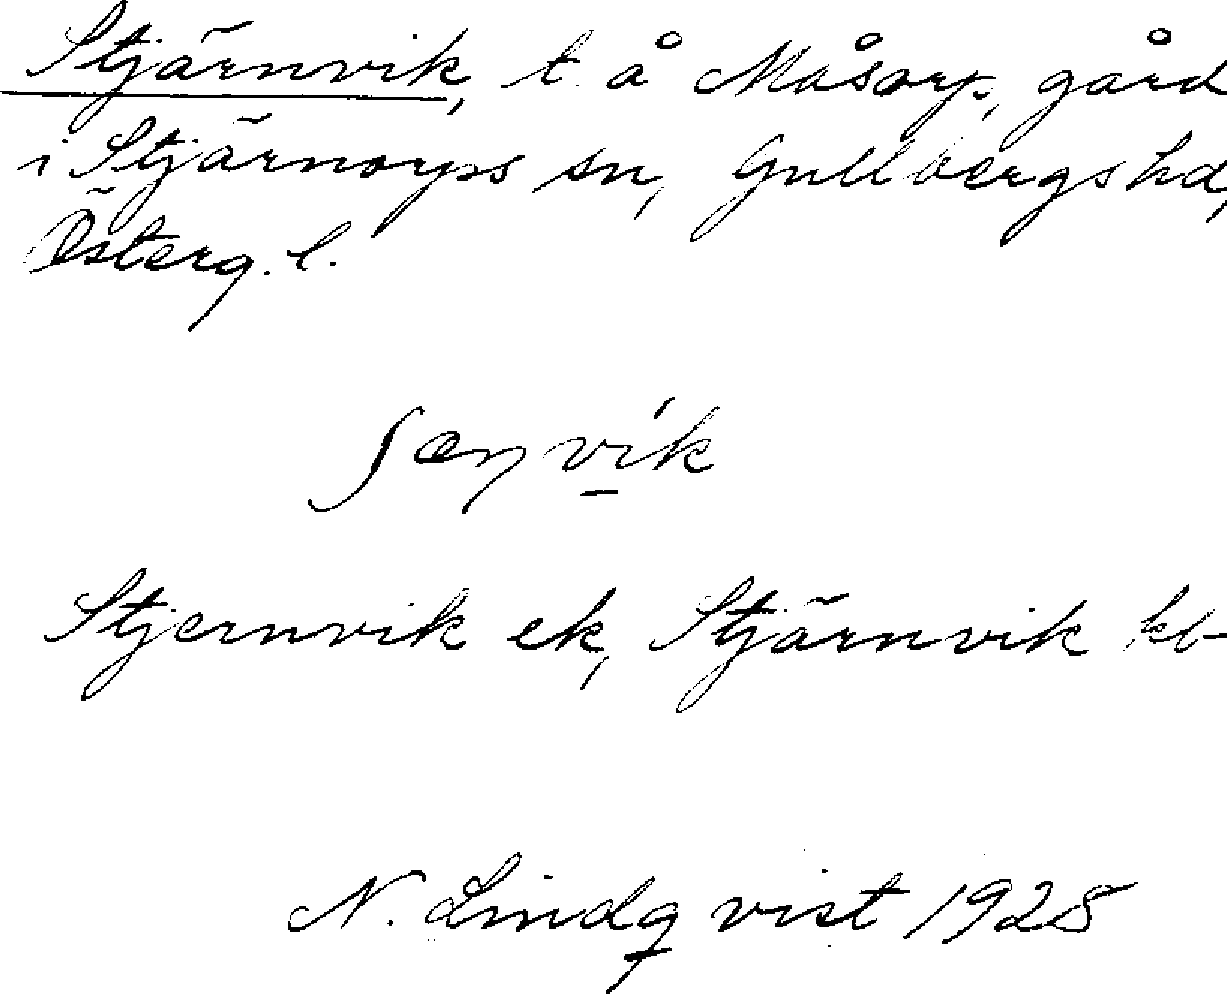 Stjärnvik, t. å Måsorp, gård
i Stjärnorps sn, Gullbergs hd,
Österg. l.
ʃæɳvik
Stjernvik ek, Stjärnvik kb
N. Lindqvist 1928